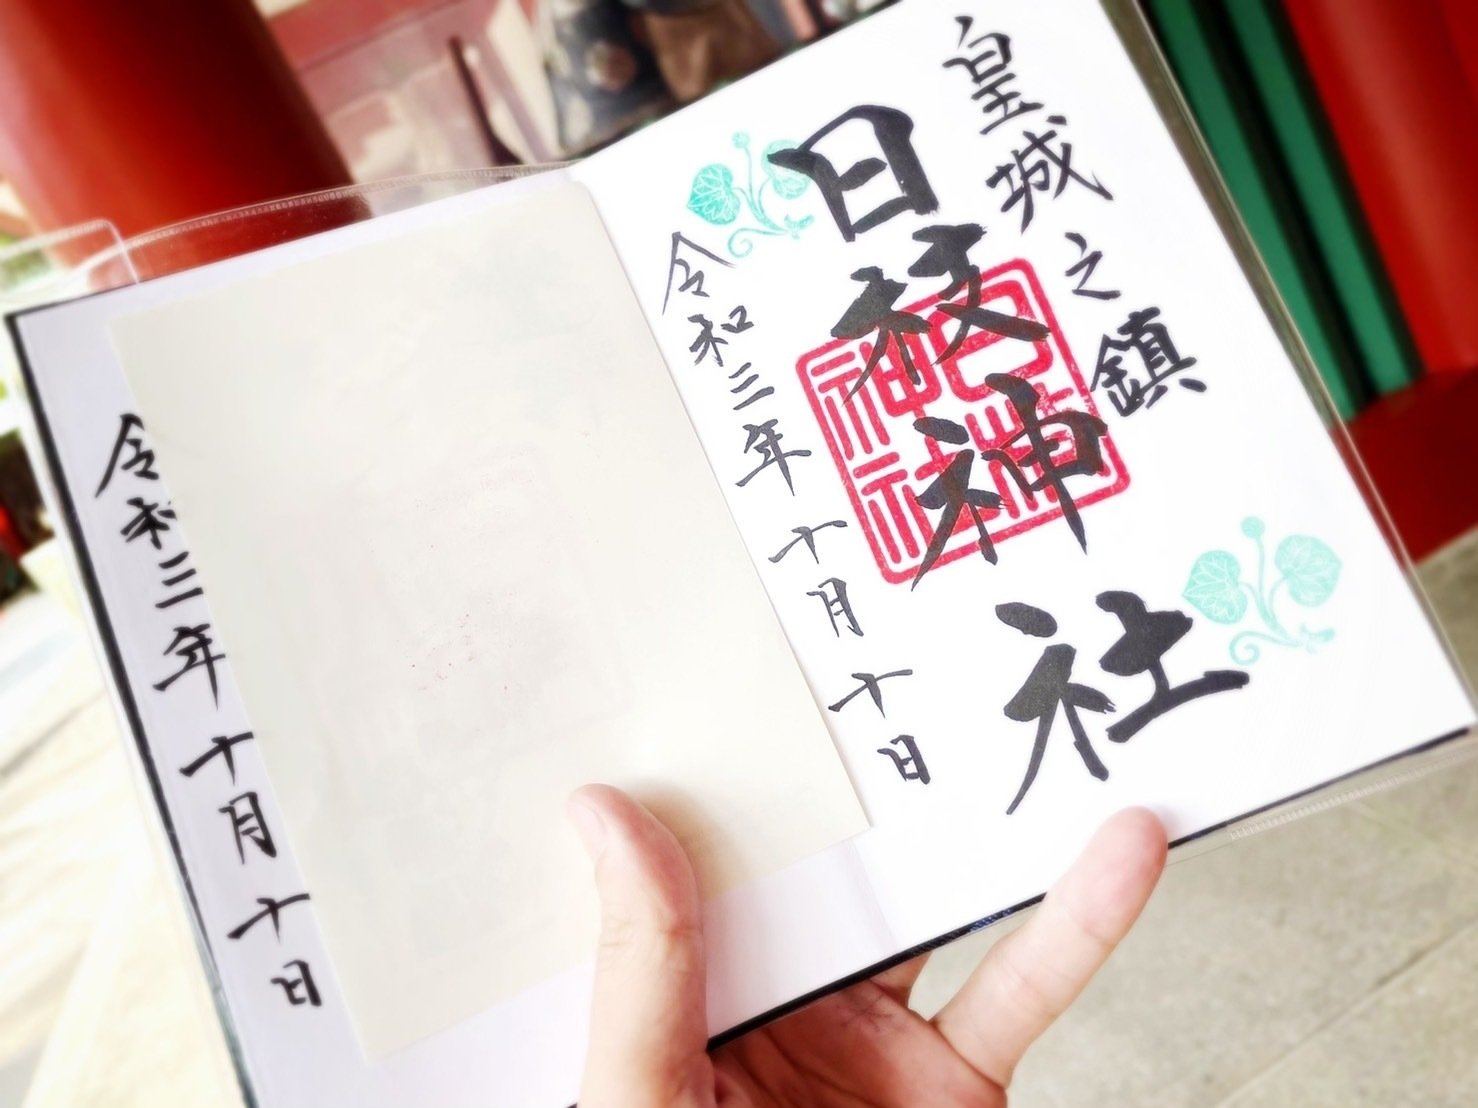 皇城之鎮
日枝神社
日枝神社
令和三年十月十日
令和三年十月十日